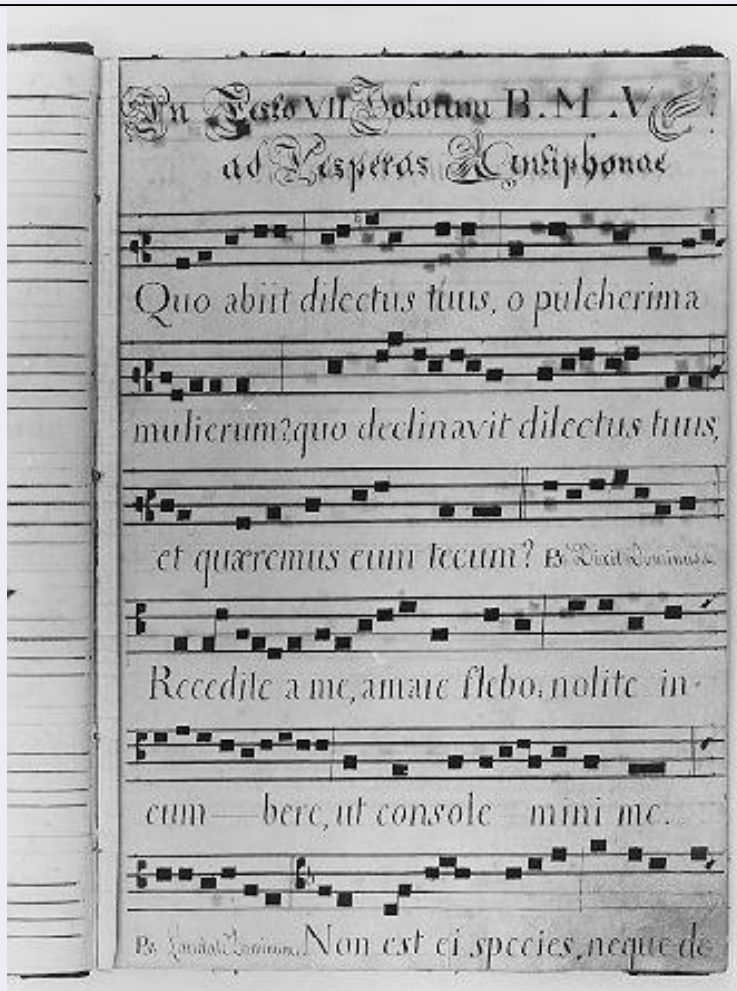 In Festo VII Dolorum B. M. V.
ad Vesperas Antiphonae
Quo abiit dilectus tuus, o pulcherima
mulierum? quo declinavit dilectus tuus,
et quæremus eum tecum? Ps. Dixit Dominus
Recedite a me, amare flebo: nolite in-
cum — bere, ut console — mini me.
Ps. Laudate Dominum. Non est ei species, neque de